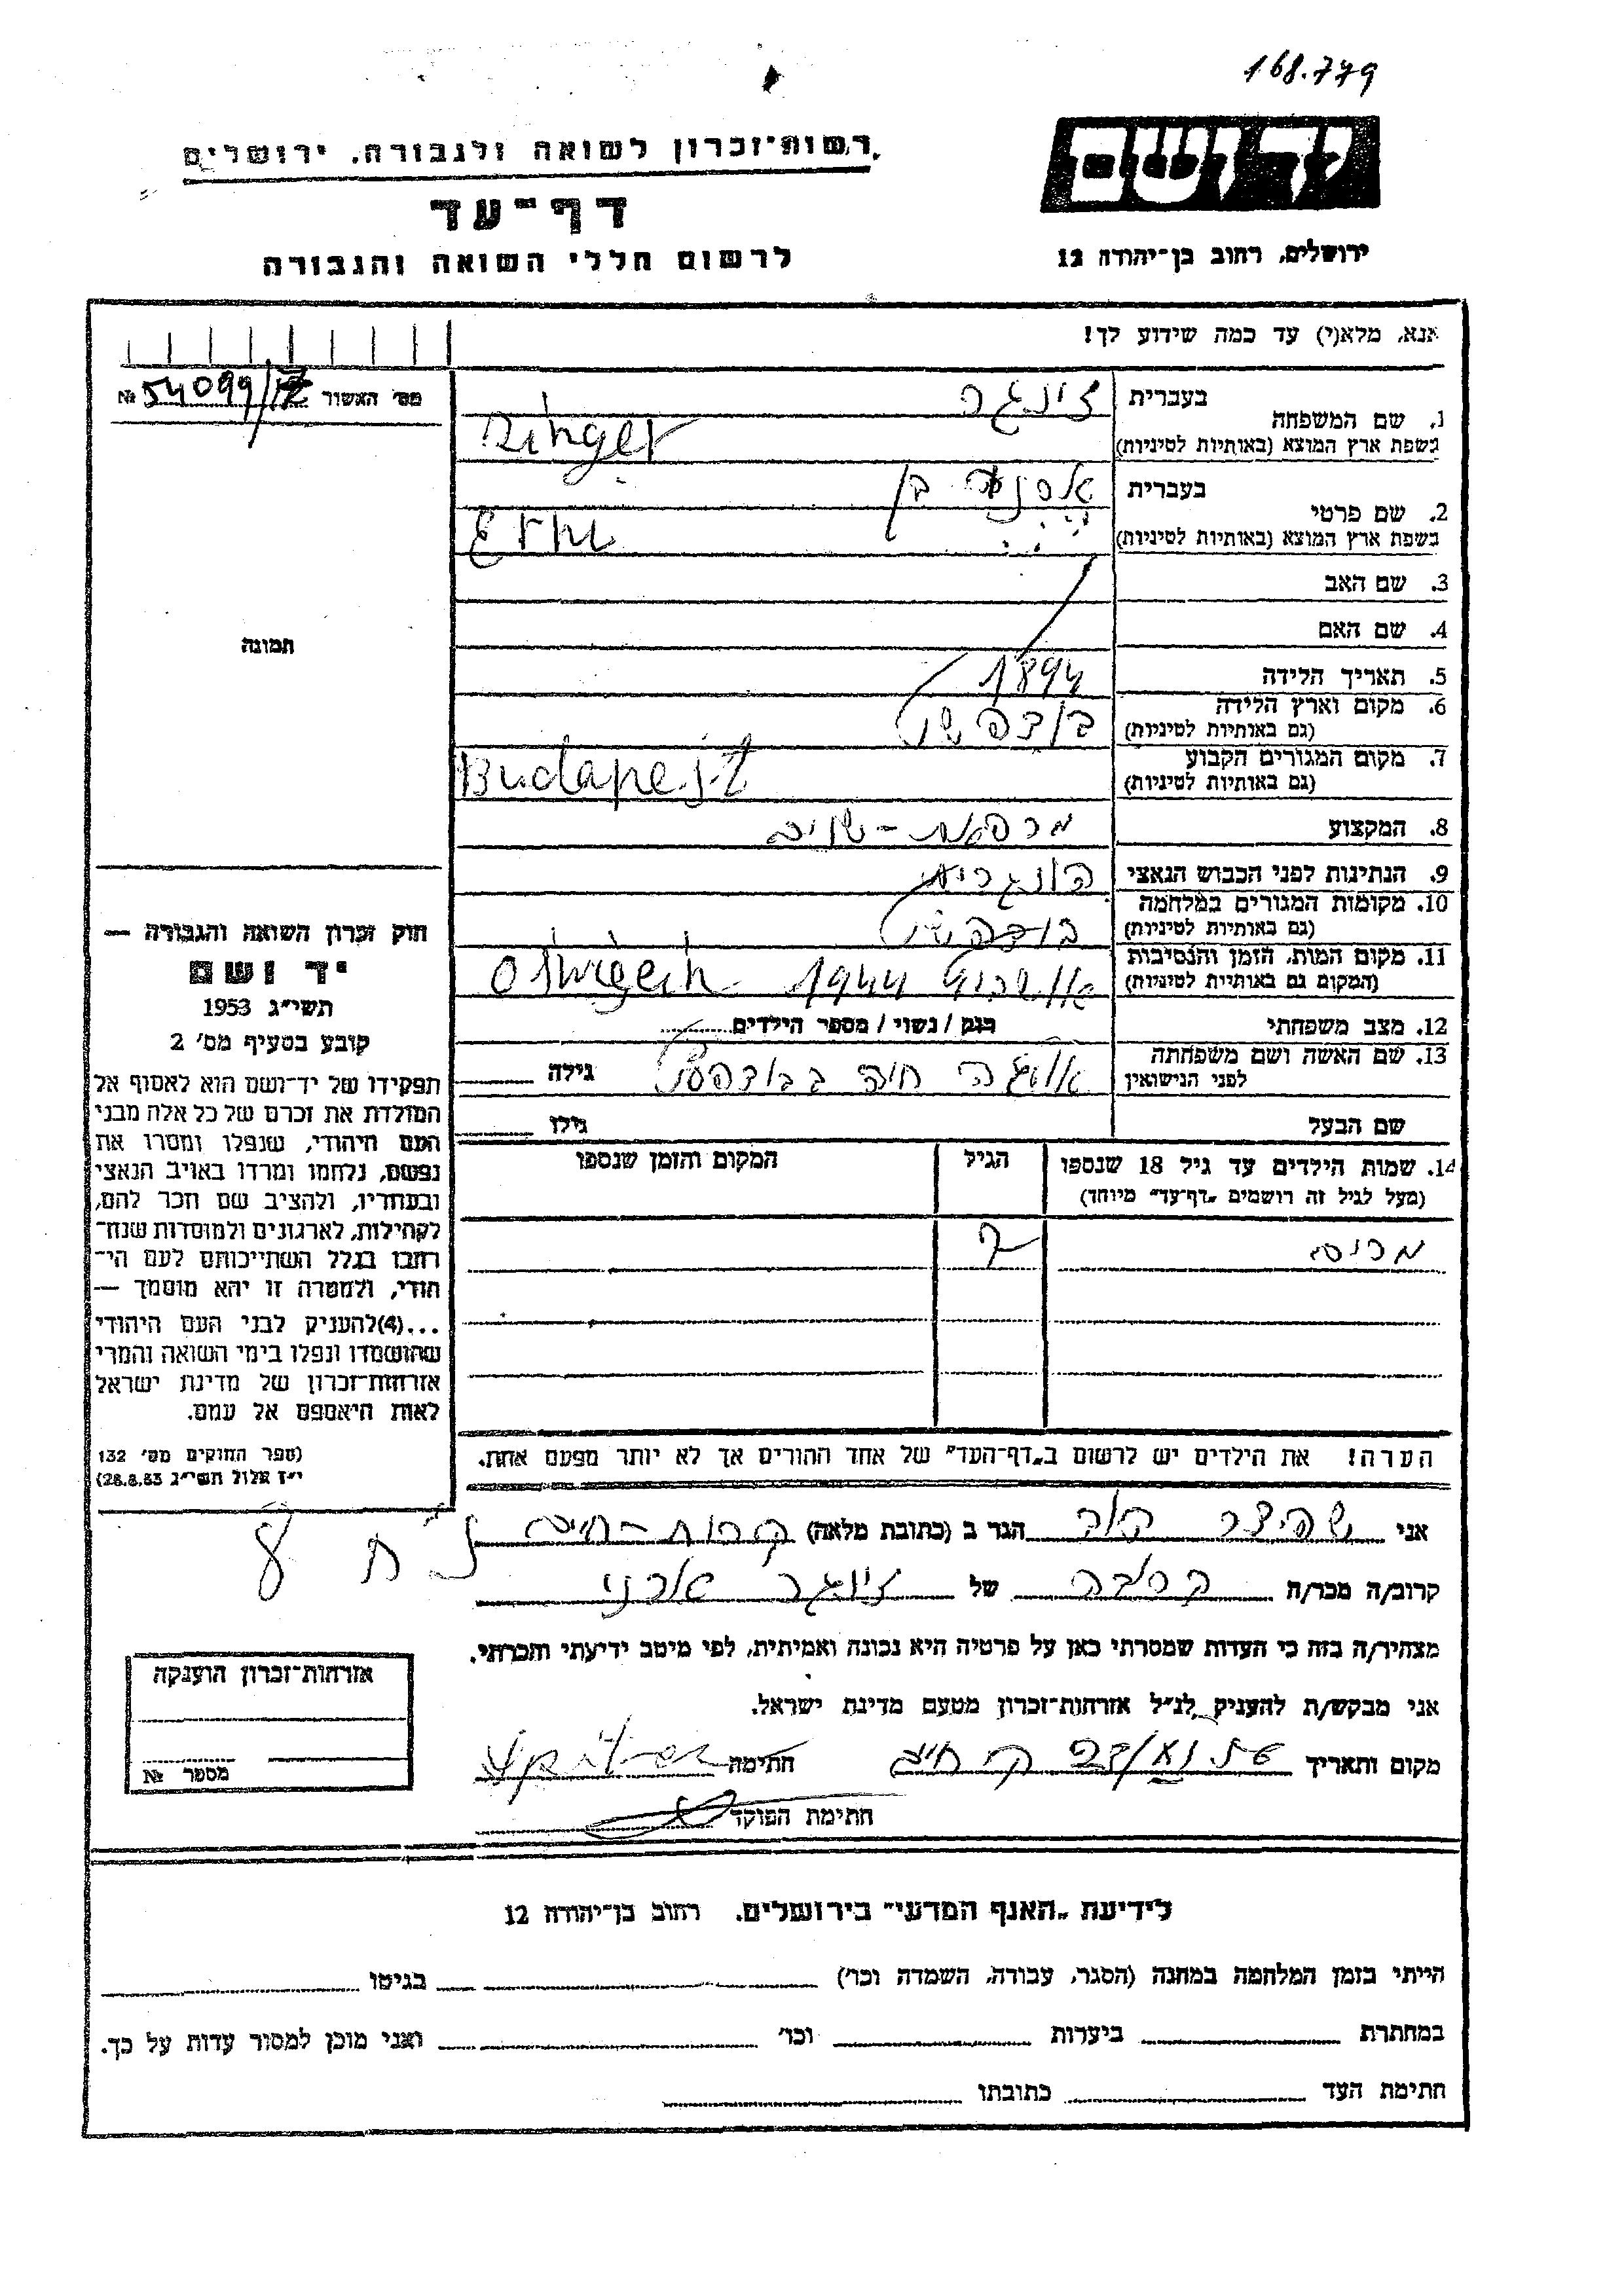 168.779
רשות־זכרון לשואה ולגבורה, ירושלים
דף־עד
לרשום חללי השואה והגבורה
יד ושם
ירושלים, רחוב בן־יהודה 12
אנא, מלא(י) עד כמה שידוע לך!
מס' האשור № 54099/
תמונה
1. שם המשפחה
בעברית
זינגר
בשפת ארץ המוצא (באותיות לטיניות)
2. שם פרטי
בעברית
בשפת ארץ המוצא (באותיות לטיניות)
3. שם האב
4. שם האם
5. תאריך הלידה 1894
6. מקום וארץ הלידה
(גם באותיות לטיניות)
בודפשט
7. מקום המגורים הקבוע
(גם באותיות לטיניות)
Budapest
8. המקצוע
9. הנתינות לפני הכבוש הנאצי הונגרית
10. מקומות המגורים במלחמה
(גם באותיות לטיניות)
בודפשט
11. מקום המות, הזמן והנסיבות
(המקום גם באותיות לטיניות)
1944
12. מצב משפחתי רוק / נשוי / מספר הילדים
13. שם האשה ושם משפחתה
לפני הנישואין
חיה בבודפסט גילה
שם הבעל גילו
14. שמות הילדים עד גיל 18 שנספו
(מעל לגיל זה רושמים "דף־עד" מיוחד)
הגיל
המקום והזמן שנספו
הערה! את הילדים יש לרשום ב"דף־העד" של אחד ההורים אך לא יותר מפעם אחת.
חוק זכרון השואה והגבורה —
יד ושם
תשי״ג 1953
קובע בסעיף מס' 2
תפקידו של יד־ושם הוא לאסוף אל
המולדת את זכרם של כל אלה מבני
העם היהודי, שנפלו ומסרו את
נפשם, נלחמו ומרדו באויב הנאצי
ובעוזריו, ולהציב שם וזכר להם,
לקהילות, לארגונים ולמוסדות שנח־
רבו בגלל השתייכותם לעם הי־
הודי, ולמטרה זו יהא מוסמך —
...(4)להעניק לבני העם היהודי
שהושמדו ונפלו בימי השואה והמרי
אזרחות־זכרון של מדינת ישראל
לאות היאספם אל עמם.
(ספר החוקים מס' 132
י״ז אלול תשי״ג 28.8.53)
אני שפיצר הגר ב (כתובת מלאה) קרית-חיים
קרוב/ה מכר/ה קרובה של זינגר ארני
מצהיר/ה בזה כי העדות שמסרתי כאן על פרטיה היא נכונה ואמיתית, לפי מיטב ידיעתי והכרתי.
אני מבקש/ת להעניק לנ״ל אזרחות־זכרון מטעם מדינת ישראל.
מקום ותאריך ק. חיים חתימה
חתימת הפוקד
אזרחות־זכרון הוענקה
מספר №
לידיעת "האנף המדעי" בירושלים. רחוב בן־יהודה 12
הייתי בזמן המלחמה במחנה (הסגר, עבודה, השמדה וכו') בגיטו
במחתרת ביערות וכו' ואני מוכן למסור עדות על כך.
חתימת העד כתובתו